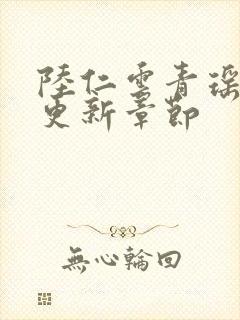 陸仁雲青瑶
更新章節
無心輪回